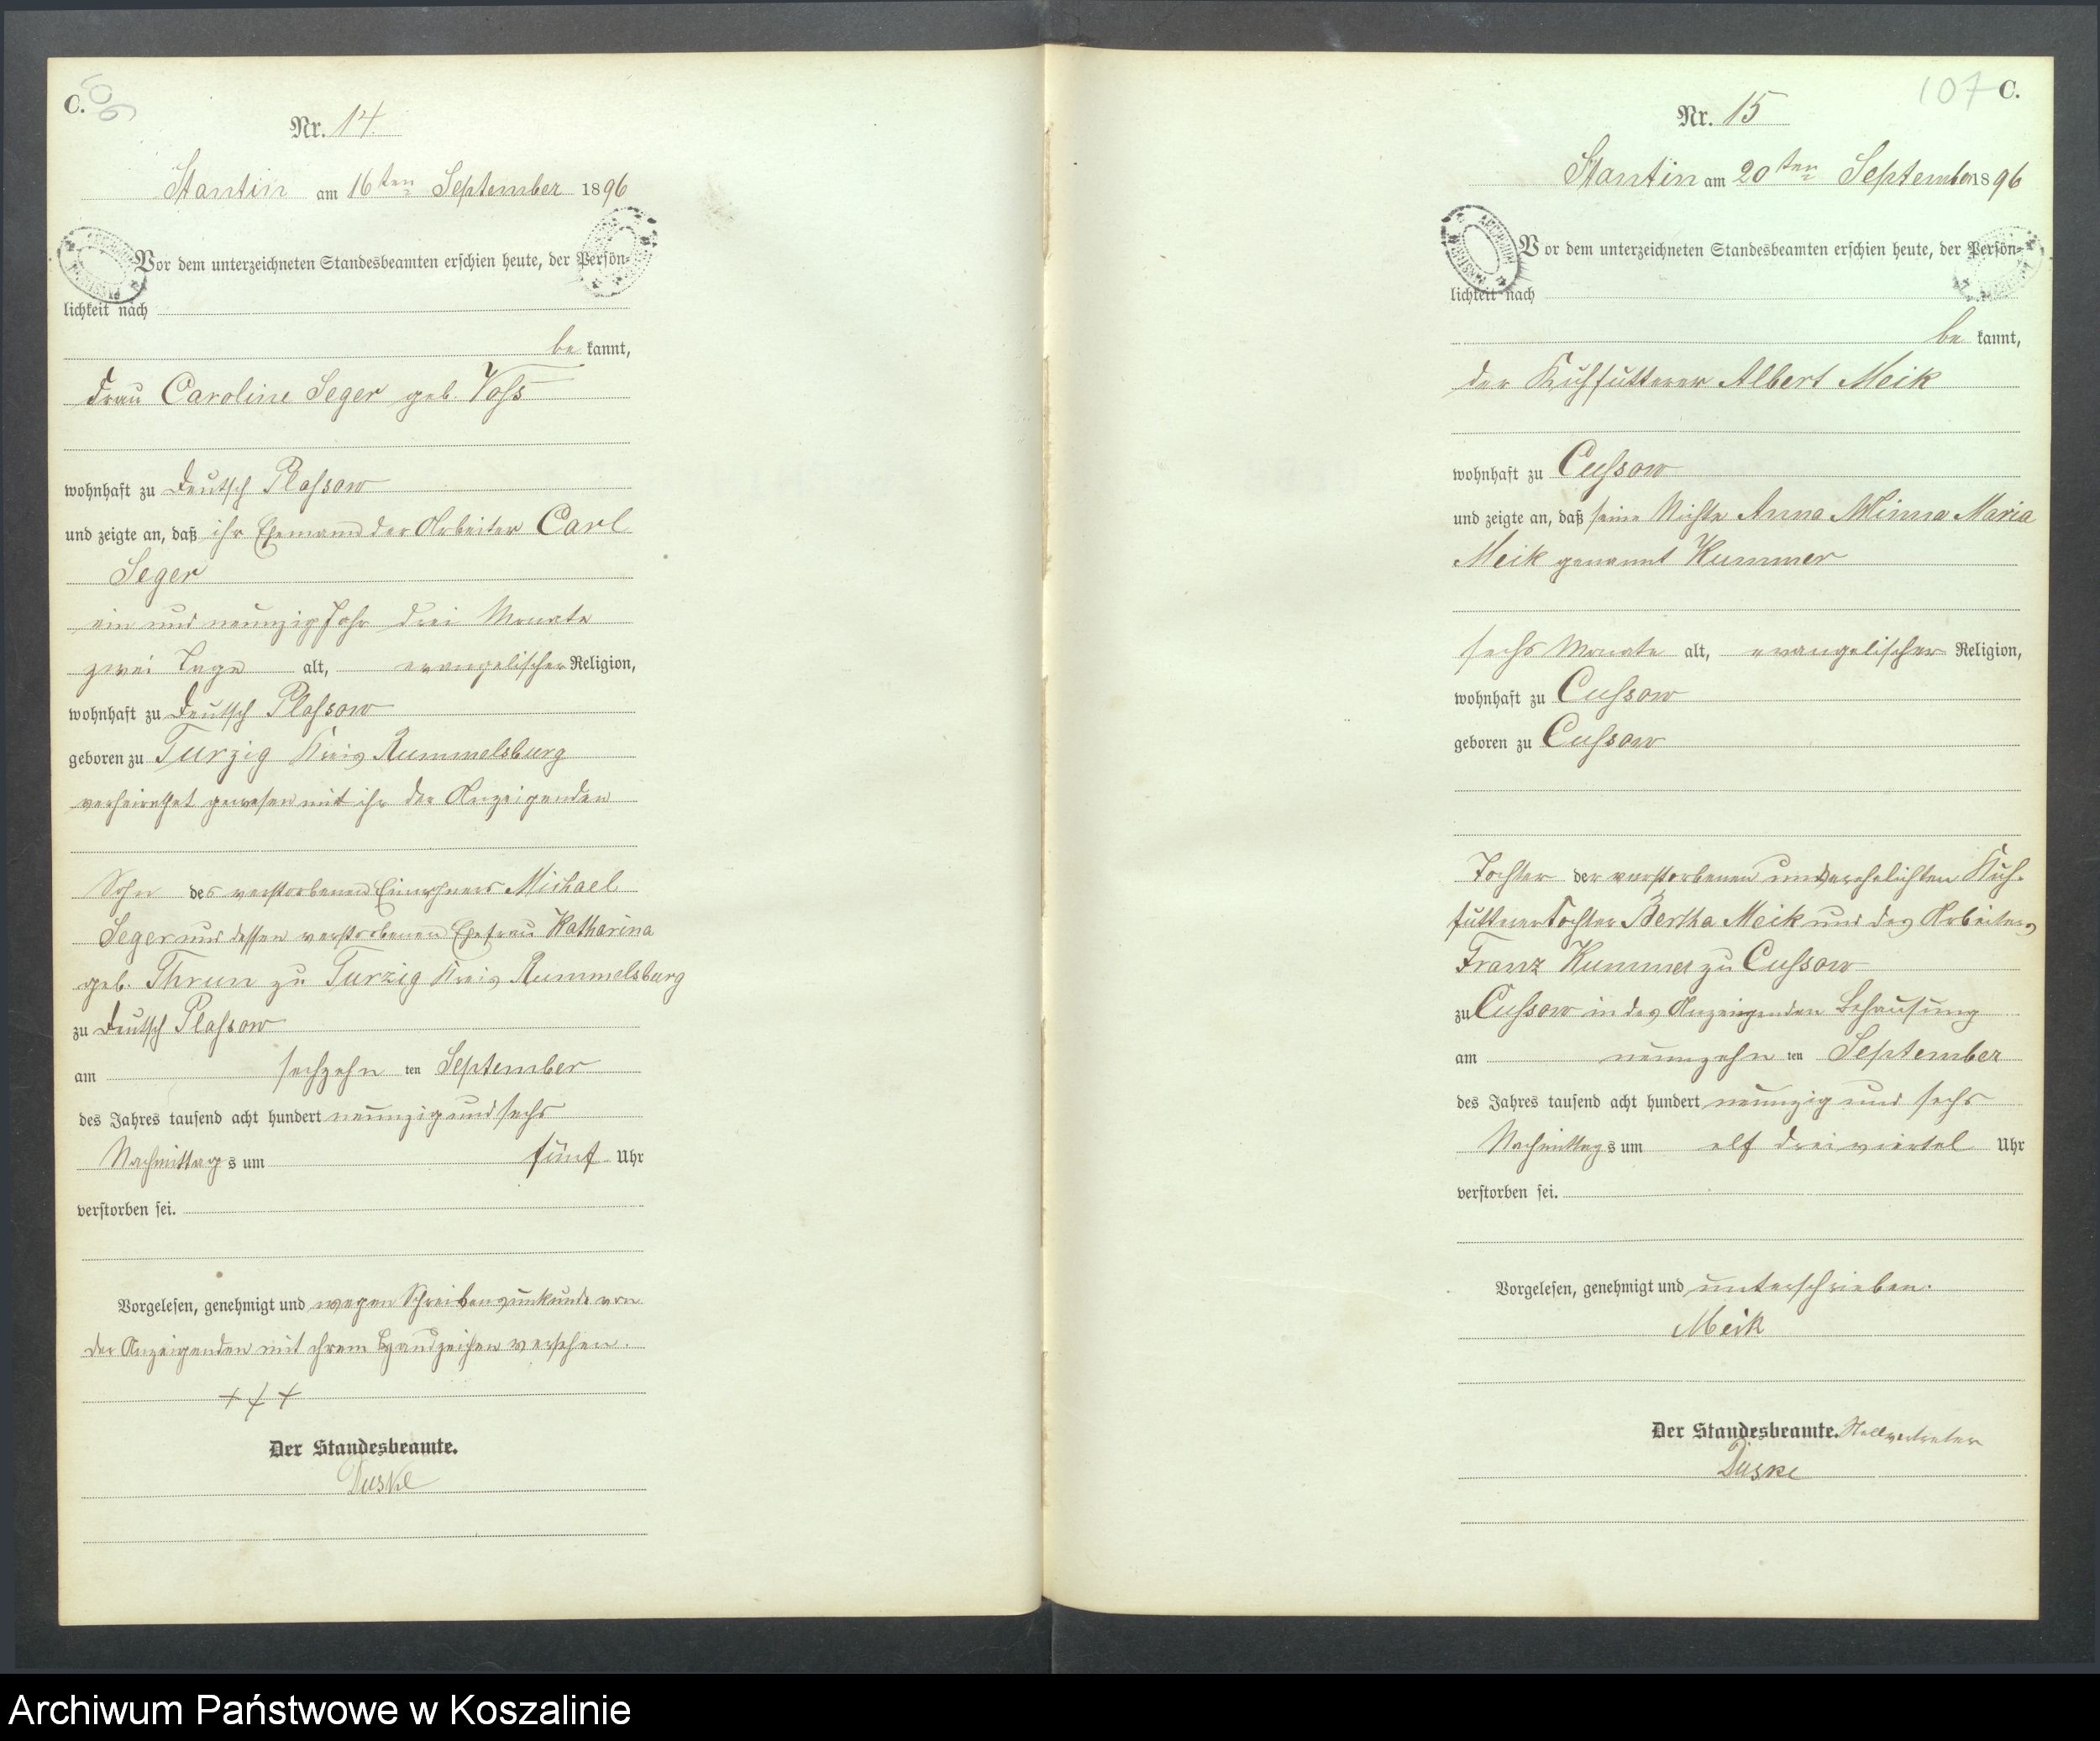 C.
106
Nr. 14
Stantin am 16ten September 1896
Vor dem unterzeichneten Standesbeamten erschien heute, der Persön-
lichkeit nach
be kannt,
Frau Caroline Seger geb. Voß
wohnhaft zu Deutsch Plassow
und zeigte an, daß ihr Ehemann der Arbeiter Carl
Seger
ein und neunzig Jahr drei Monate
zwei Tage alt, evangelischer Religion,
wohnhaft zu Deutsch Plassow
geboren zu Turzig Kreis Rummelsburg
verheirathet gewesen mit ihr der Anzeigenden
Sohn des verstorbenen Einwohners Michael
Seger und dessen verstorbenen Ehefrau Katharina
geb. Thrun zu Turzig Kreis Rummelsburg
zu Deutsch Plassow
am sechzehn ten September
des Jahres tausend acht hundert neunzig und sechs
Nachmittags um fünf Uhr
verstorben sei.
Vorgelesen, genehmigt und wegen Schreibensunkunde von
der Anzeigenden mit ihrem Handzeichen versehen.
+ + +
Der Standesbeamte.
Duske
107 C.
Nr. 15
Stantin am 20ten September 1896
Vor dem unterzeichneten Standesbeamten erschien heute, der Persön-
lichkeit nach
be kannt,
der Kuhfutterer Albert Meik
wohnhaft zu Cussow
und zeigte an, daß seine Nichte Anna Minna Maria
Meik genannt Kummer
sechs Monate alt, evangelischer Religion,
wohnhaft zu Cussow
geboren zu Cussow
Tochter der verstorbenen unverehelichten Kuh-
futterertochter Bertha Meik und des Arbeiters
Franz Kummer zu Cussow
zu Cussow in des Anzeigenden Behausung
am neunzehn ten September
des Jahres tausend acht hundert neunzig und sechs
Nachmittags um elf dreiviertel Uhr
verstorben sei.
Vorgelesen, genehmigt und unterschrieben.
Meik
Der Standesbeamte. Stellvertreter
Duske
Archiwum Państwowe w Koszalinie